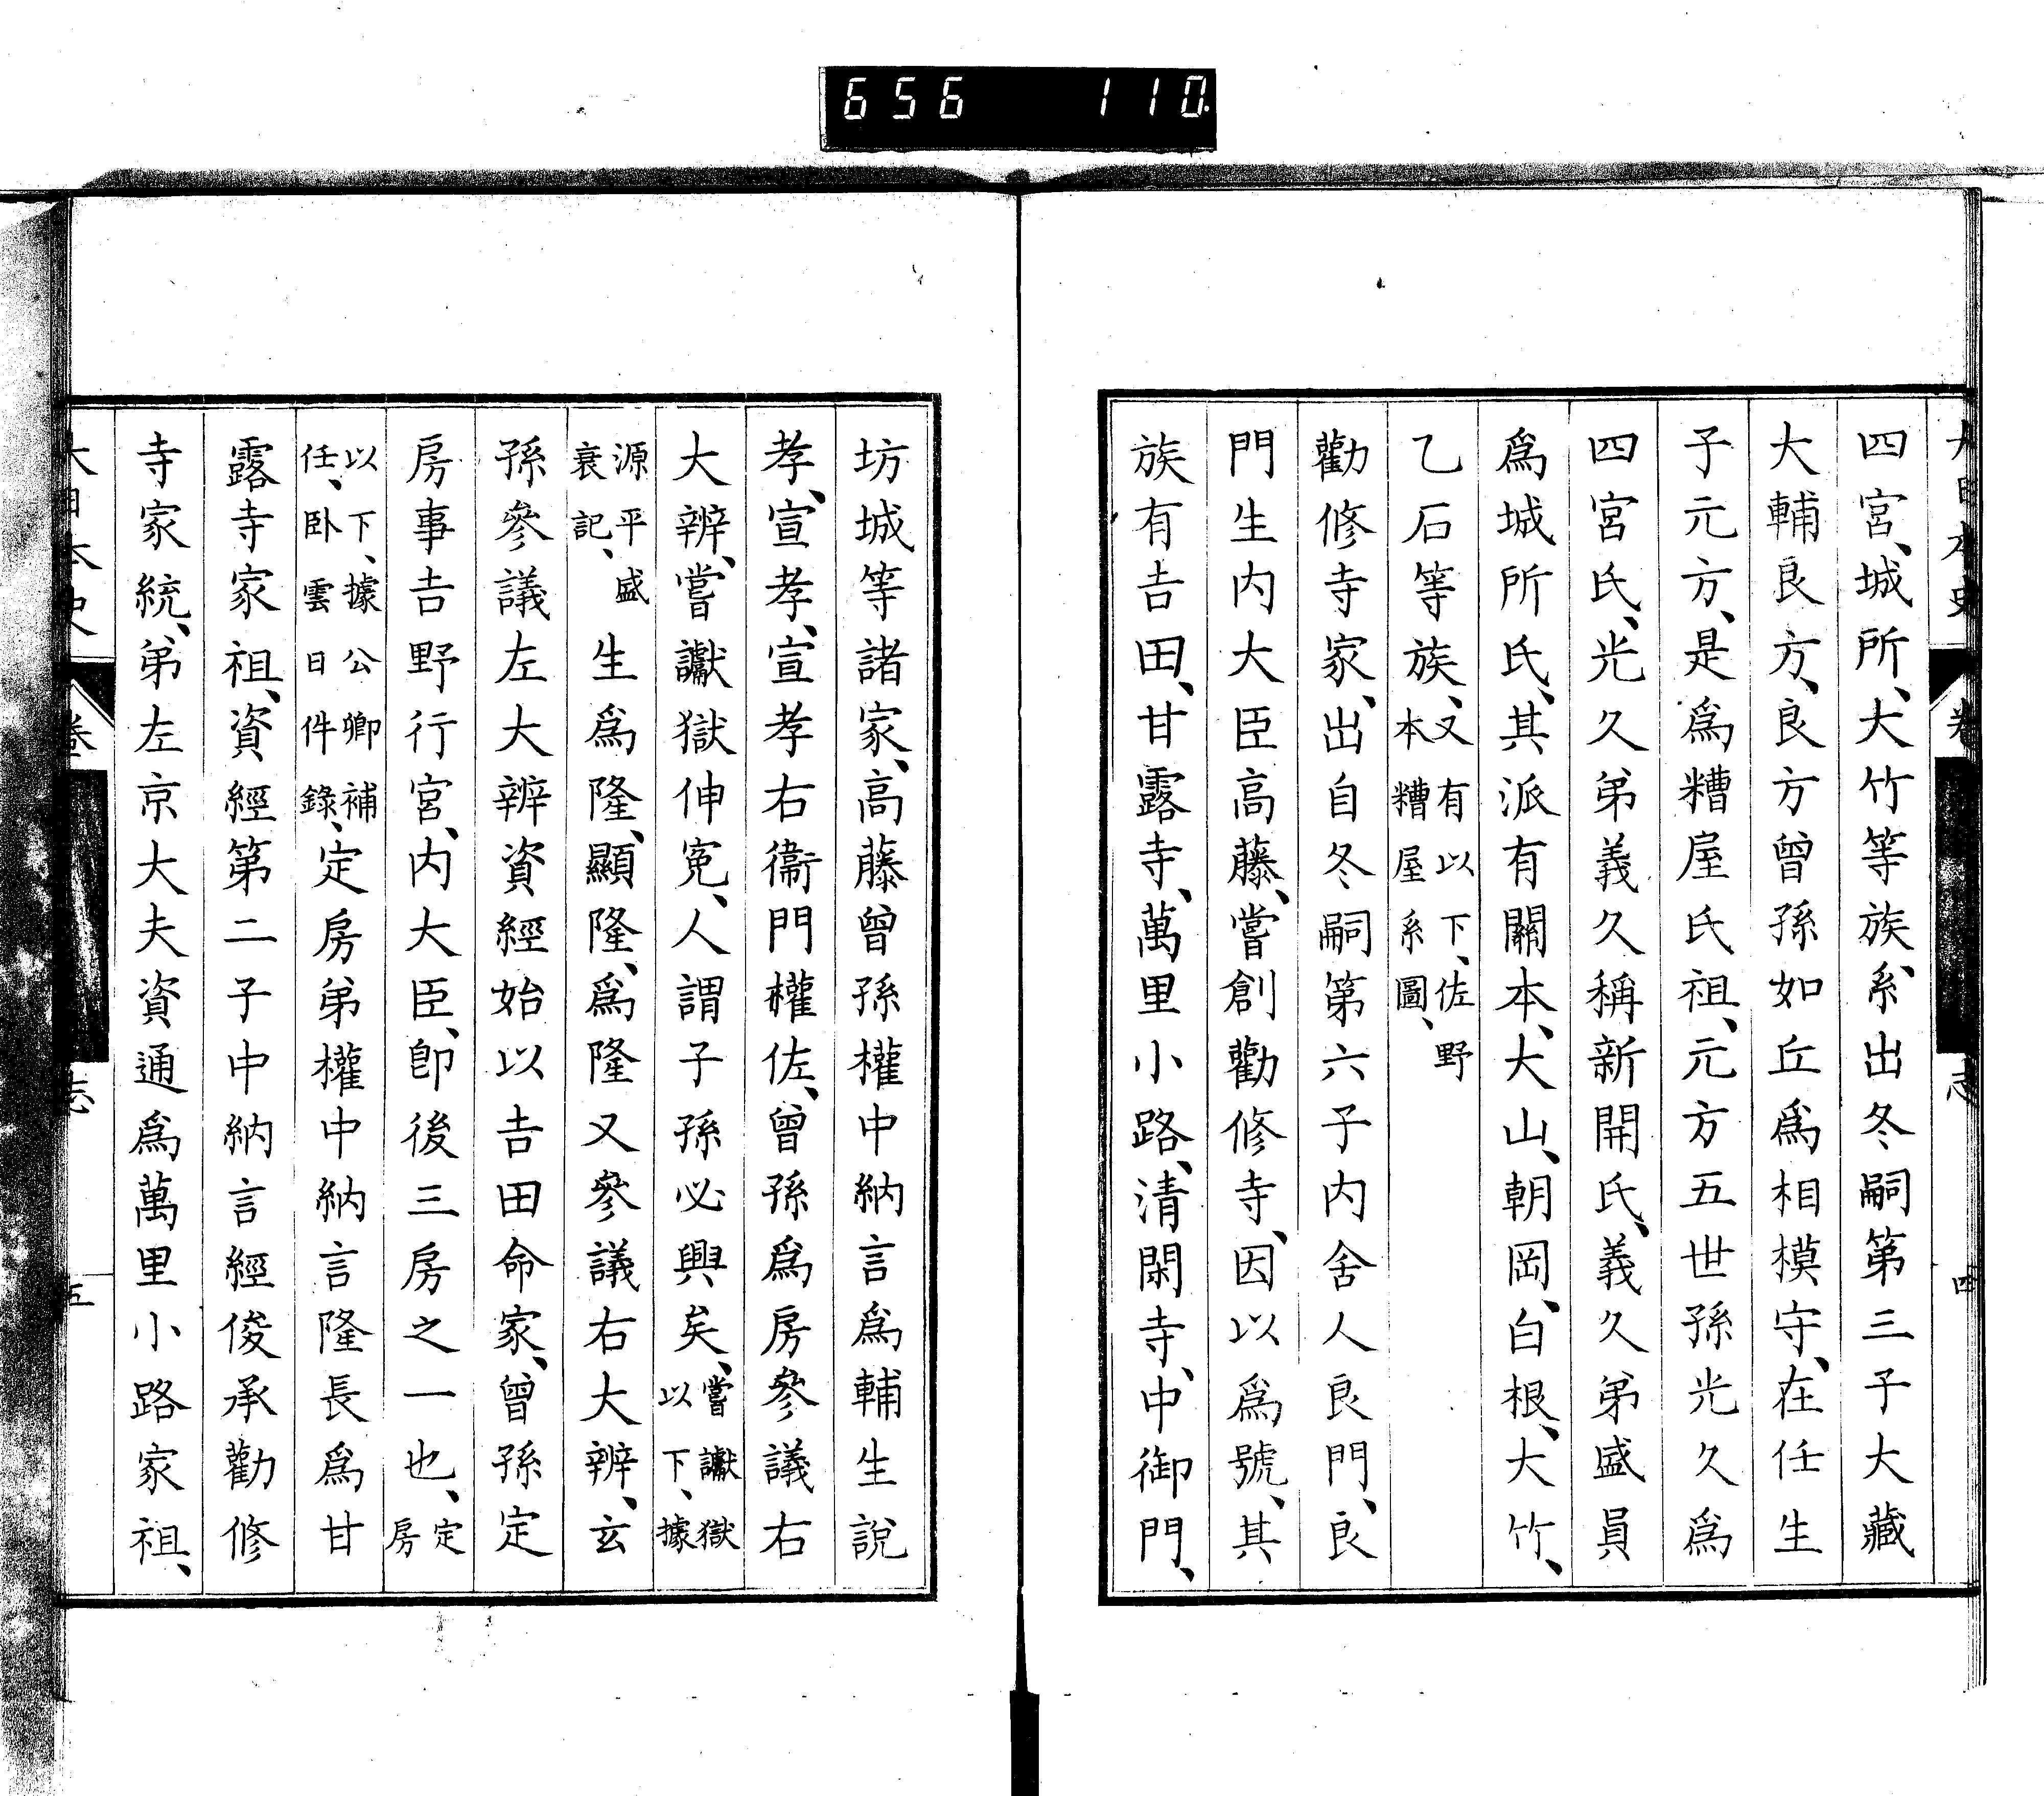 656 110
大日本史 卷 志 四
四宮、城所、大竹等族、系出冬嗣第三子大藏
大輔良方、良方曾孫如丘爲相模守、在任生
子元方、是爲糟屋氏祖、元方五世孫光久爲
四宮氏、光久弟義久稱新開氏、義久弟盛員
爲城所氏、其派有關本、大山、朝岡、白根、大竹、
乙石等族、又有以下、佐野本糟屋系圖、
勸修寺家、出自冬嗣第六子内舍人良門、良
門生内大臣高藤、嘗創勸修寺、因以爲號、其
族有吉田、甘露寺、萬里小路、清閑寺、中御門、
坊城等諸家、高藤曾孫權中納言爲輔生說
孝、宣孝、宣孝右衞門權佐、曾孫爲房參議右
大辨、嘗讞獄伸寃、人謂子孫必興矣、嘗讞獄以下、據
源平盛衰記、生爲隆、顯隆、爲隆又參議右大辨、玄
孫參議左大辨資經始以吉田命家、曾孫定
房事吉野行宮、内大臣、卽後三房之一也、定房
以下、據公卿補任、臥雲日件錄、定房弟權中納言隆長爲甘
露寺家祖、資經第二子中納言經俊承勸修
寺家統、弟左京大夫資通爲萬里小路家祖、
大日本史 卷 志 五